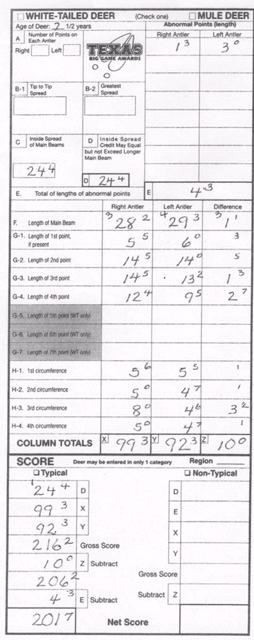 WHITE-TAILED DEER (Check one) MULE DEER
Age of Deer: 2 1/2 years Abnormal Points (length)
A Number of Points on Each Antler Right Antler Left Antler
Right Left 1 3 3 0
TEXAS
BIG GAME AWARDS
B-1 Tip to Tip Spread B-2 Greatest Spread
C Inside Spread of Main Beams D Inside Spread Credit May Equal but not Exceed Longer Main Beam
24 4 D 24 4
E. Total of lengths of abnormal points E 4 3
Right Antler Left Antler Difference
F. Length of Main Beam 28 2 29 3 1 1
G-1. Length of 1st point, if present 5 5 6 0 3
G-2. Length of 2nd point 14 5 14 0 5
G-3. Length of 3rd point 14 5 13 2 1 3
G-4. Length of 4th point 12 4 9 5 2 7
G-5. Length of 5th point (WT only)
G-6. Length of 6th point (WT only)
G-7. Length of 7th point (WT only)
H-1. 1st circumference 5 6 5 5 1
H-2. 2nd circumference 5 0 4 7 1
H-3. 3rd circumference 8 0 4 6 3 2
H-4. 4th circumference 5 0 4 7 1
COLUMN TOTALS X 99 3 Y 92 3 Z 10 0
SCORE Deer may be entered in only 1 category Region
Typical Non-Typical
24 4 D D
99 3 X E
92 3 Y X
216 2 Gross Score
10 0 Z Subtract Y
206 2 Gross Score
4 3 E Subtract Subtract Z
201 7 Net Score